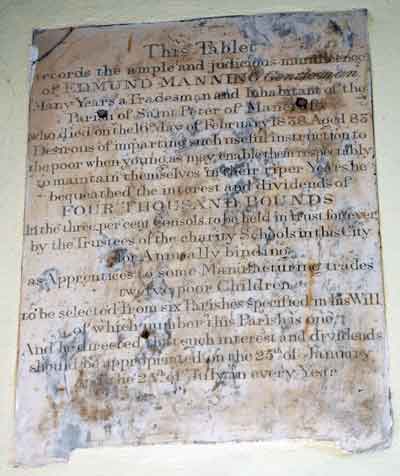 This Tablet
records the ample and judicious munificence
of EDMUND MANNING Gentleman
Many Years a Tradesman and Inhabitant of the
Parish of Saint Peter of Mancroft
who died on the 16 day of February 1838. Aged 83
Desirous of imparting such useful instruction to
the poor when young, as may enable them respectably
to maintain themselves in their riper Years he
bequeathed the interest and dividends of
FOUR THOUSAND POUNDS
in the three per cent Consols to be held in trust for ever
by the Trustees of the charity Schools in this City
for Annually binding
as Apprentices to some Manufacturing trades
twelve poor Children
to be selected from six Parishes specified in his Will
of which number this Parish is one,
And he directed that such interest and dividends
should be appropriated on the 25th of January
the 25th of July in every Year